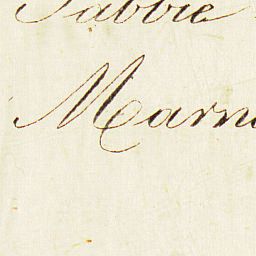 Tabbie
Marn